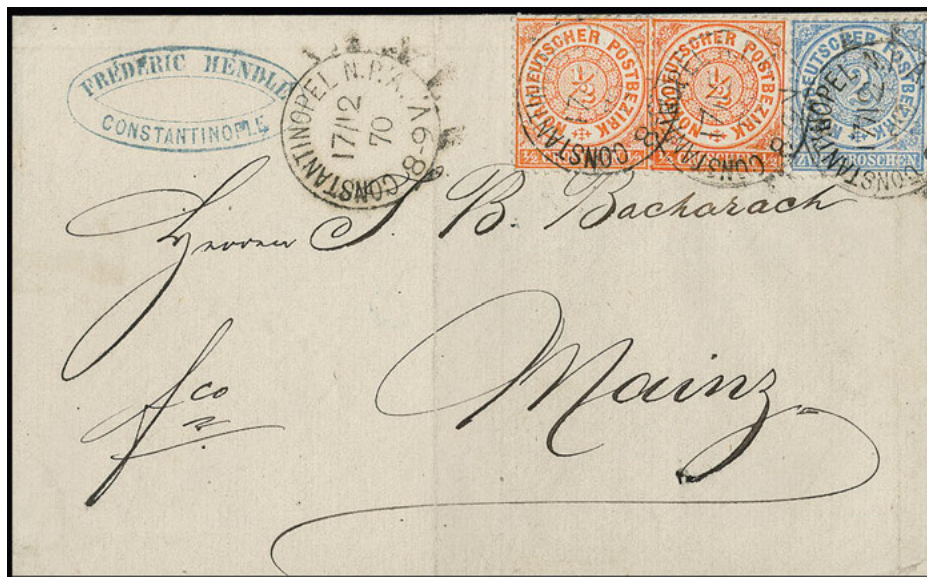 FRÉDÉRIC HENDLE
CONSTANTINOPLE
CONSTANTINOPEL N.P.A. V 8-9
17/12
70
NORDDEUTSCHER POSTBEZIRK
1/2
1/2 GROSCHEN 1/2
NORDDEUTSCHER POSTBEZIRK
1/2
1/2 GROSCHEN 1/2
NORDDEUTSCHER POSTBEZIRK
2
ZWEI GROSCHEN
Herren S. B. Bacharach
fco
Mainz